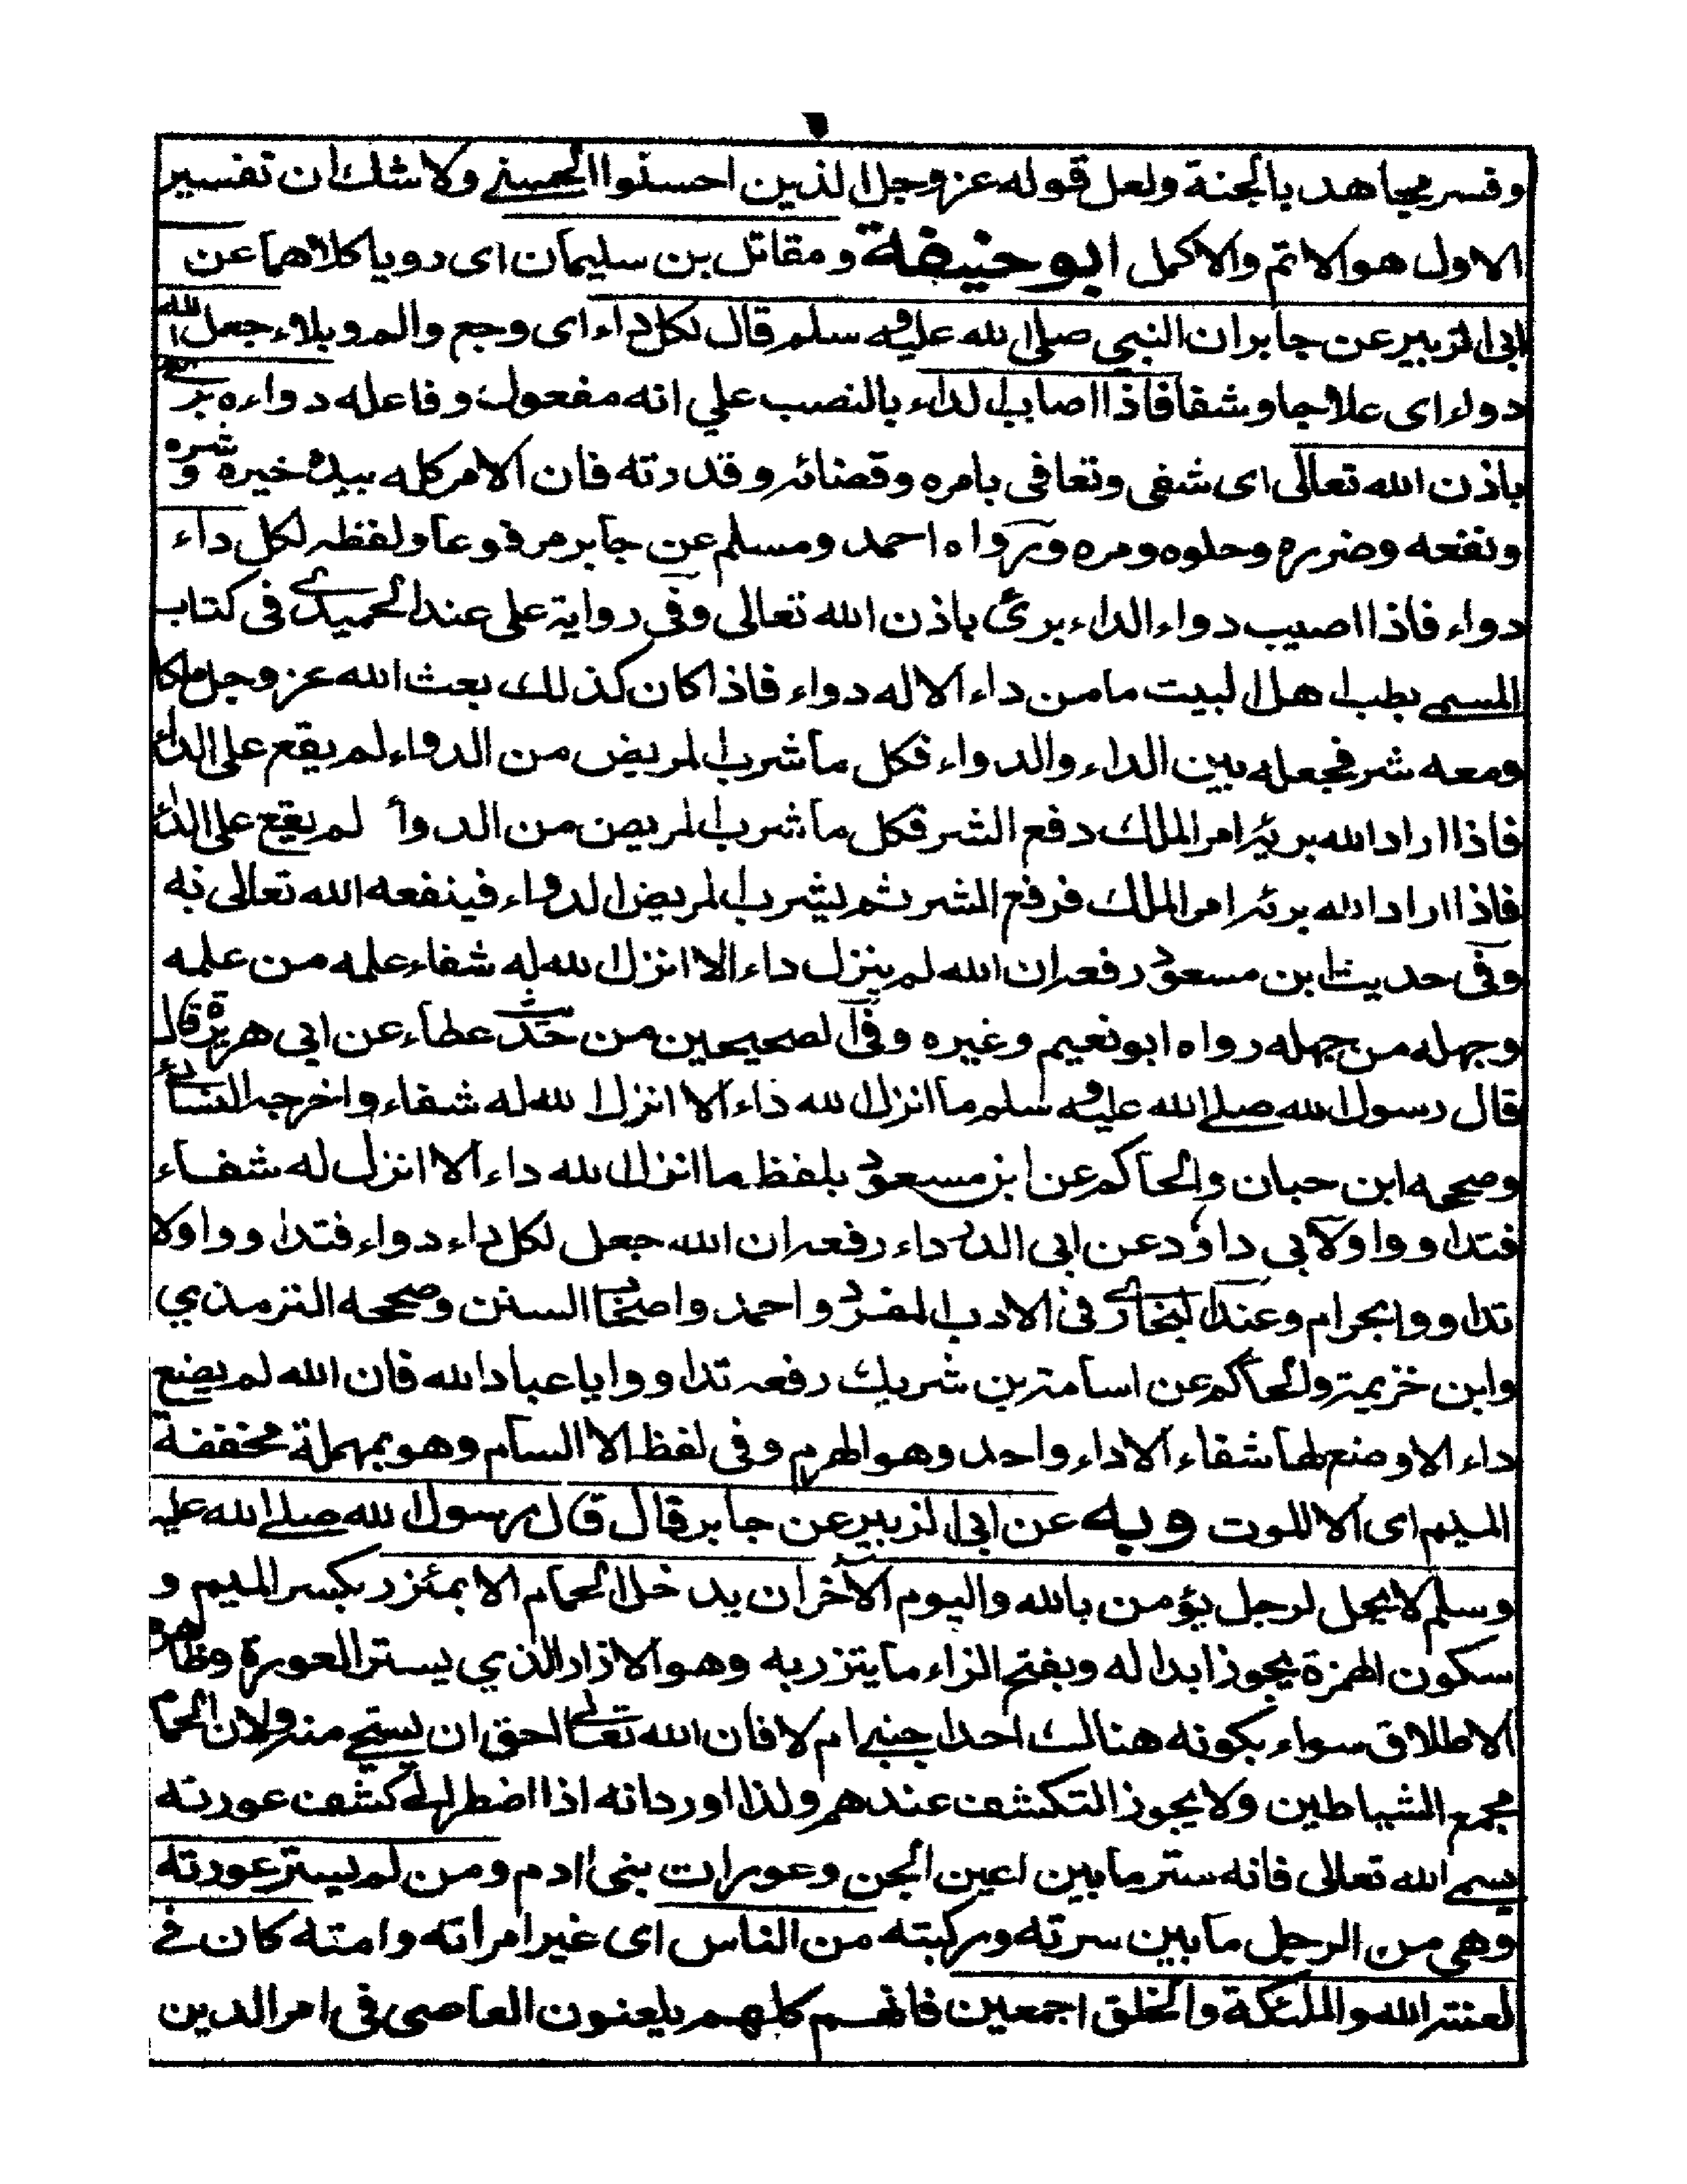 وفسر مجاهد بالجنة ولعل قوله عز وجل الذين احسنوا الحسنى ولا شك ان تفسير
الاول هو الاتم والاكمل ابو حنيفة ومقاتل بن سليمان اى رويا كلاهما عن
ابى الزبير عن جابر ان النبي صلى الله عليه وسلم قال لكل داء اى وجع والم وبلاء جعل الله
دواء اى علاجا وشفا فاذا اصاب الداء بالنصب علي انه مفعول وفاعله دواءه برئ
باذن الله تعالى اى شفى وتعافى بامره وقضائه وقدرته فان الامر كله بيده خيره وشره
ونفعه وضرره وحلوه ومره ورواه احمد ومسلم عن جابر مرفوعا ولفظه لكل داء
دواء فاذا اصيب دواء الداء برئ باذن الله تعالى وفى رواية على عند الحميدى فى كتاب
المسمى بطب اهل البيت ما من داء الا له دواء فاذا كان كذلك بعث الله عز وجل ملكا
ومعه شر فجعله بين الداء والدواء فكل ما شرب المريض من الدواء لم يقع على الداء
فاذا اراد الله بريه امر الملك دفع الشر فكل ما شرب المريض من الدوأ لم يقع على الداء
فاذا اراد الله برئه امر الملك فرفع الشر ثم يشرب المريض الدواء فينفعه الله تعالى به
وفى حديث ابن مسعود رفعه ان الله لم ينزل داء الا انزل الله له شفاء علمه من علمه
وجهله من جهله رواه ابو نعيم وغيره وفى الصحيحين من حديث عطاء عن ابى هريرة قال
قال رسول الله صلى الله عليه وسلم ما انزل الله داء الا انزل الله له شفاء واخرجه النسائى
وصححه ابن حبان والحاكم عن ابن مسعود بلفظ ما انزل الله داء الا انزل له شفاء
فتداووا ولابى داود عن ابى الدرداء رفعه ان الله جعل لكل داء دواء فتداووا ولا
تداووا بحرام وعند البخارى فى الادب المفرد واحمد واصحاب السنن وصححه الترمذي
وابن خزيمة والحاكم عن اسامة بن شريك رفعه تداووا يا عباد الله فان الله لم يضع
داء الا وضع لها شفاء الا داء واحد وهو الهرم وفى لفظ الا السام وهو بمهملة مخففة
الميم اى الا الموت وبه عن ابى الزبير عن جابر قال قال رسول الله صلى الله عليه
وسلم لا يحل لرجل يؤمن بالله واليوم الآخر ان يدخل الحمام الا بمئزر بكسر الميم و
سكون الهمزة يجوز ابداله وبفتح الزاء ما يتزر به وهو الازار الذي يستر العورة وظاهره
الاطلاق سواء بكونه هنالك احد اجنبى ام لا فان الله تعالى احق ان يستحى منه ولان الحمام
مجمع الشياطين ولا يجوز التكشف عندهم ولذا اورد انه اذا اضطر الى كشف عورته
يسمى الله تعالى فانه ستر ما بين اعين الجن وعورات بنى ادم ومن لم يستر عورته
وهى من الرجل ما بين سرته وركبته من الناس اى غير امراته وامته كان فى
لعنة الله والملئكة والخلق اجمعين فانهم كلهم يلعنون العاصى فى امر الدين